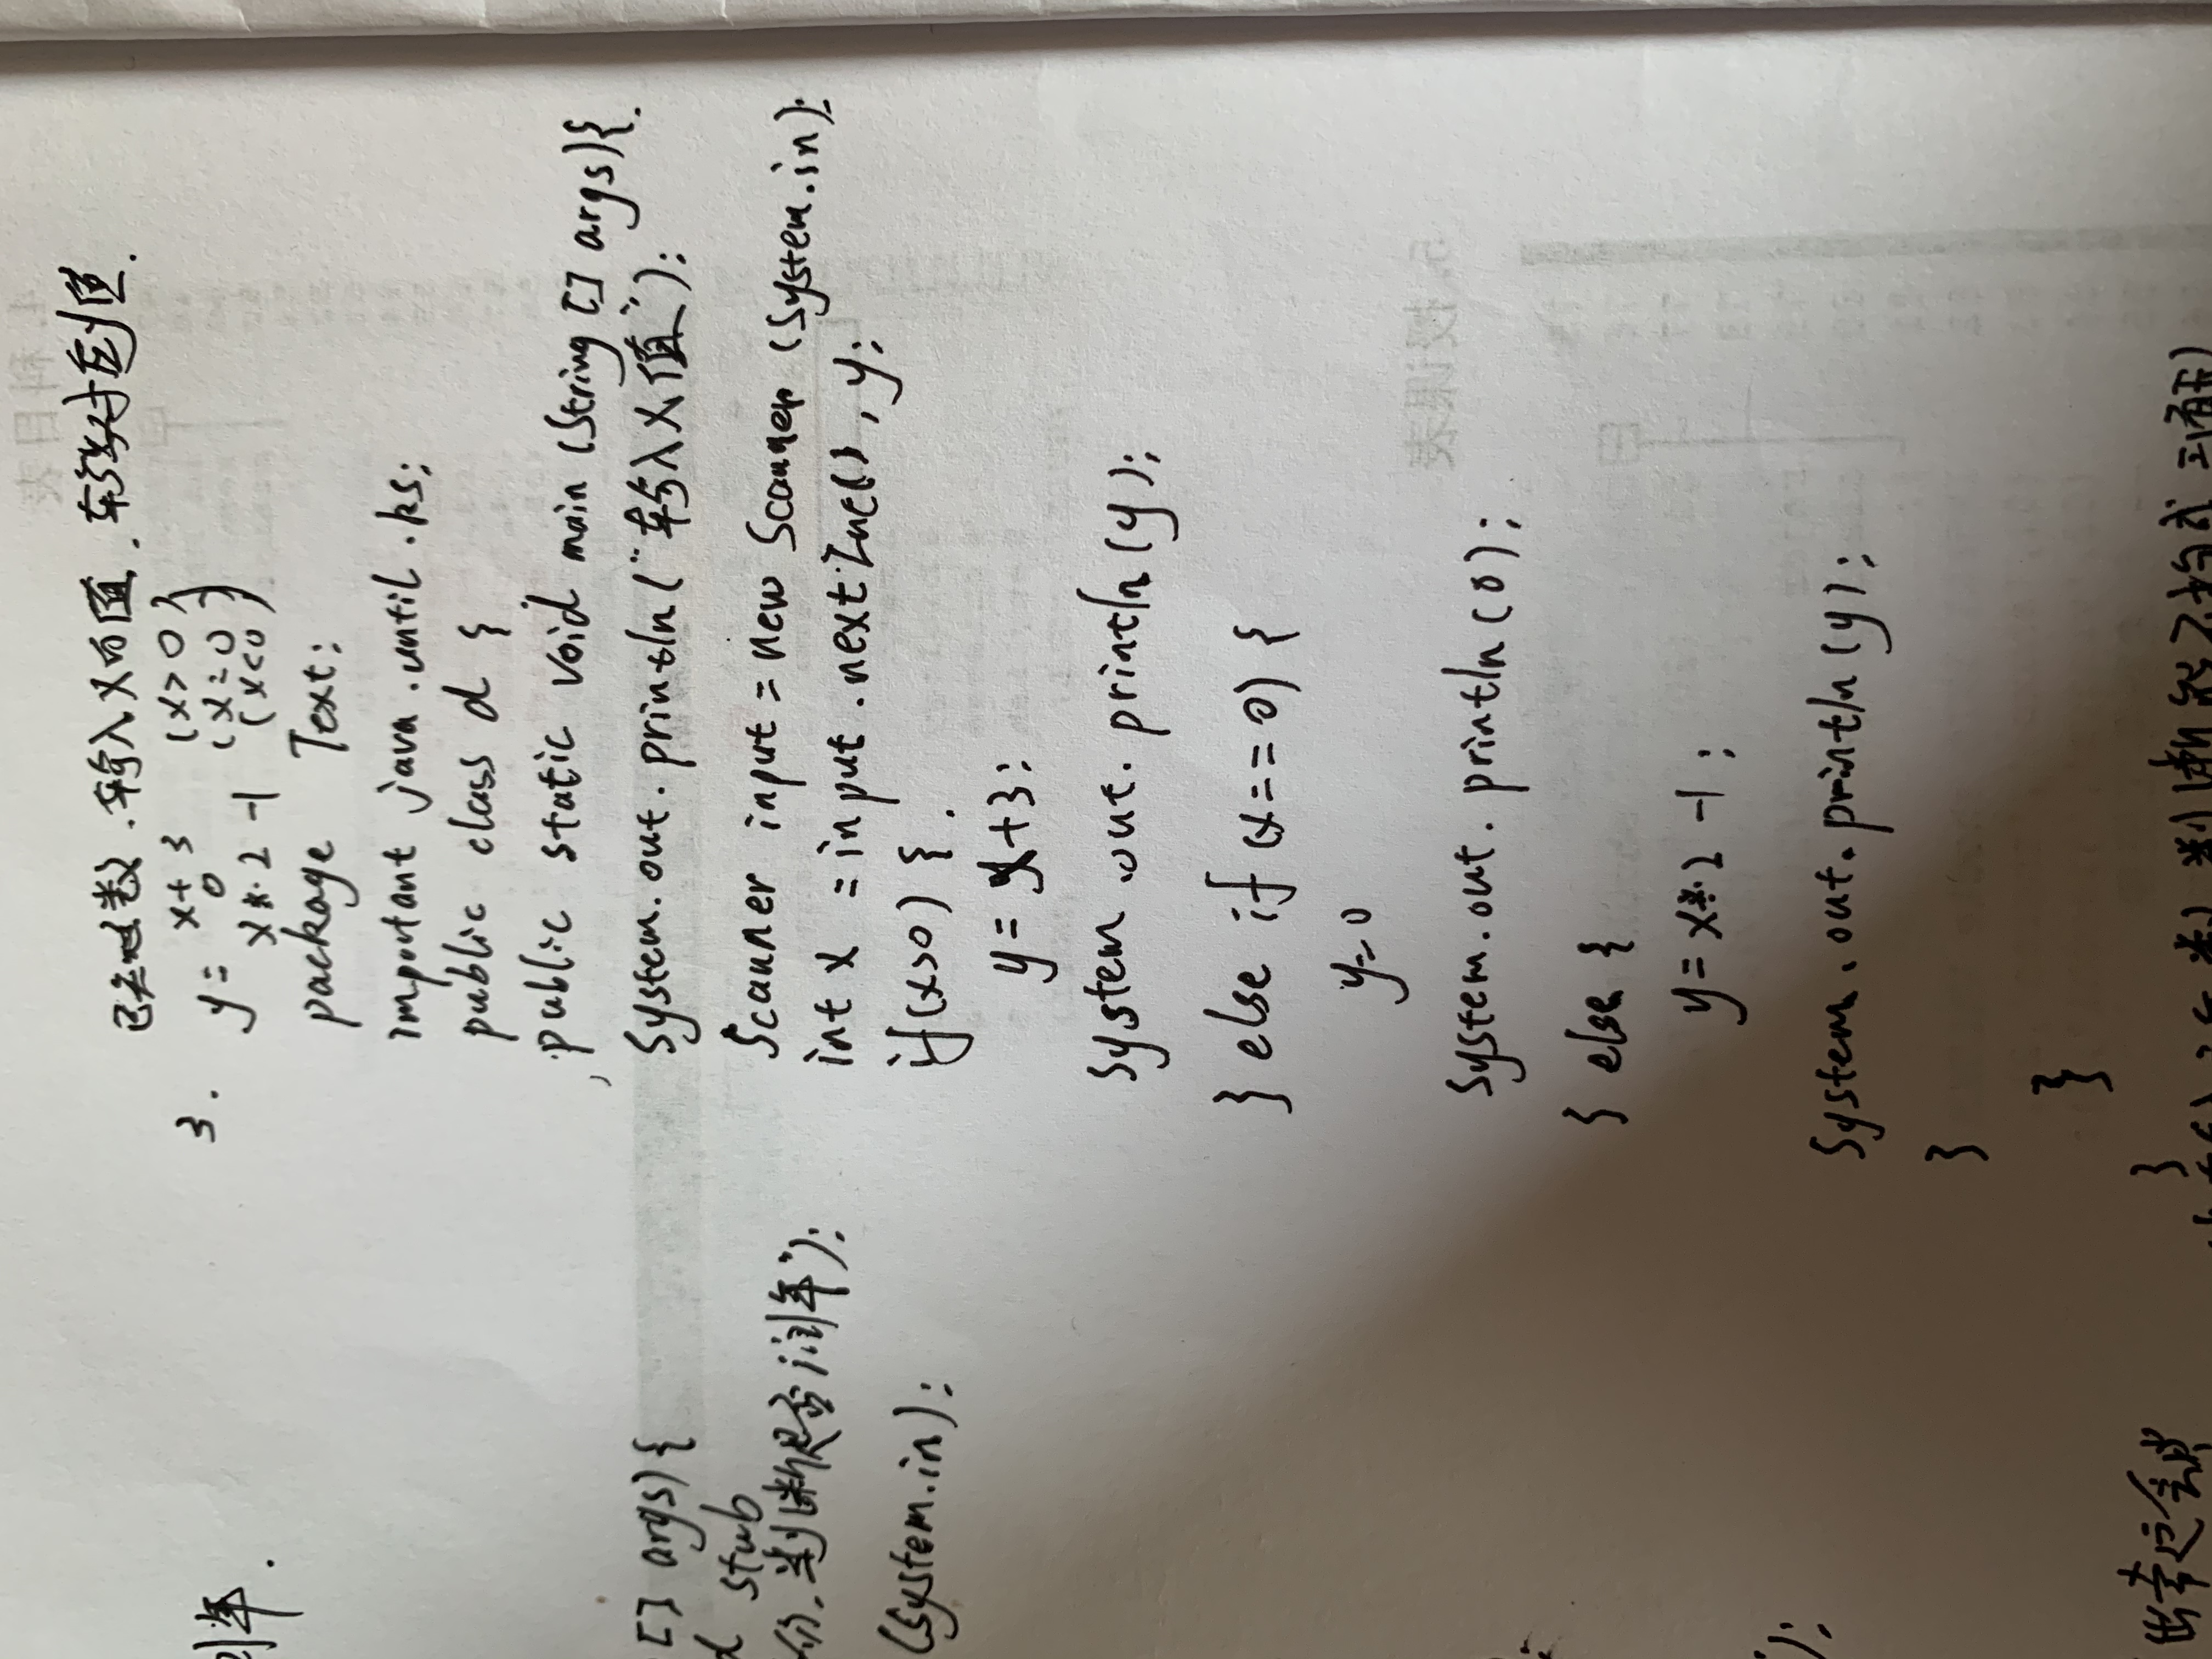 3. 已知函数.输入x的值.输出对应y值.
x+3 (x>0)
y= 0 (x=0)
x*2-1 (x<0)
package Text;
important java.until.ks;
public class d {
public static void main (String [] args){.
System.out.println("输入x值");
Scanner input = new Scanner (System.in);
int x = input.nextInt(), y;
if(x>0) {.
y = x+3;
System.out.println(y);
} else if (x==0) {
y=0
System.out.println(0);
} else {
y = x*2-1;
System.out.println(y);
}
}
}
年.
[] args){
stub
判断是否闰年");
(System.in);
);